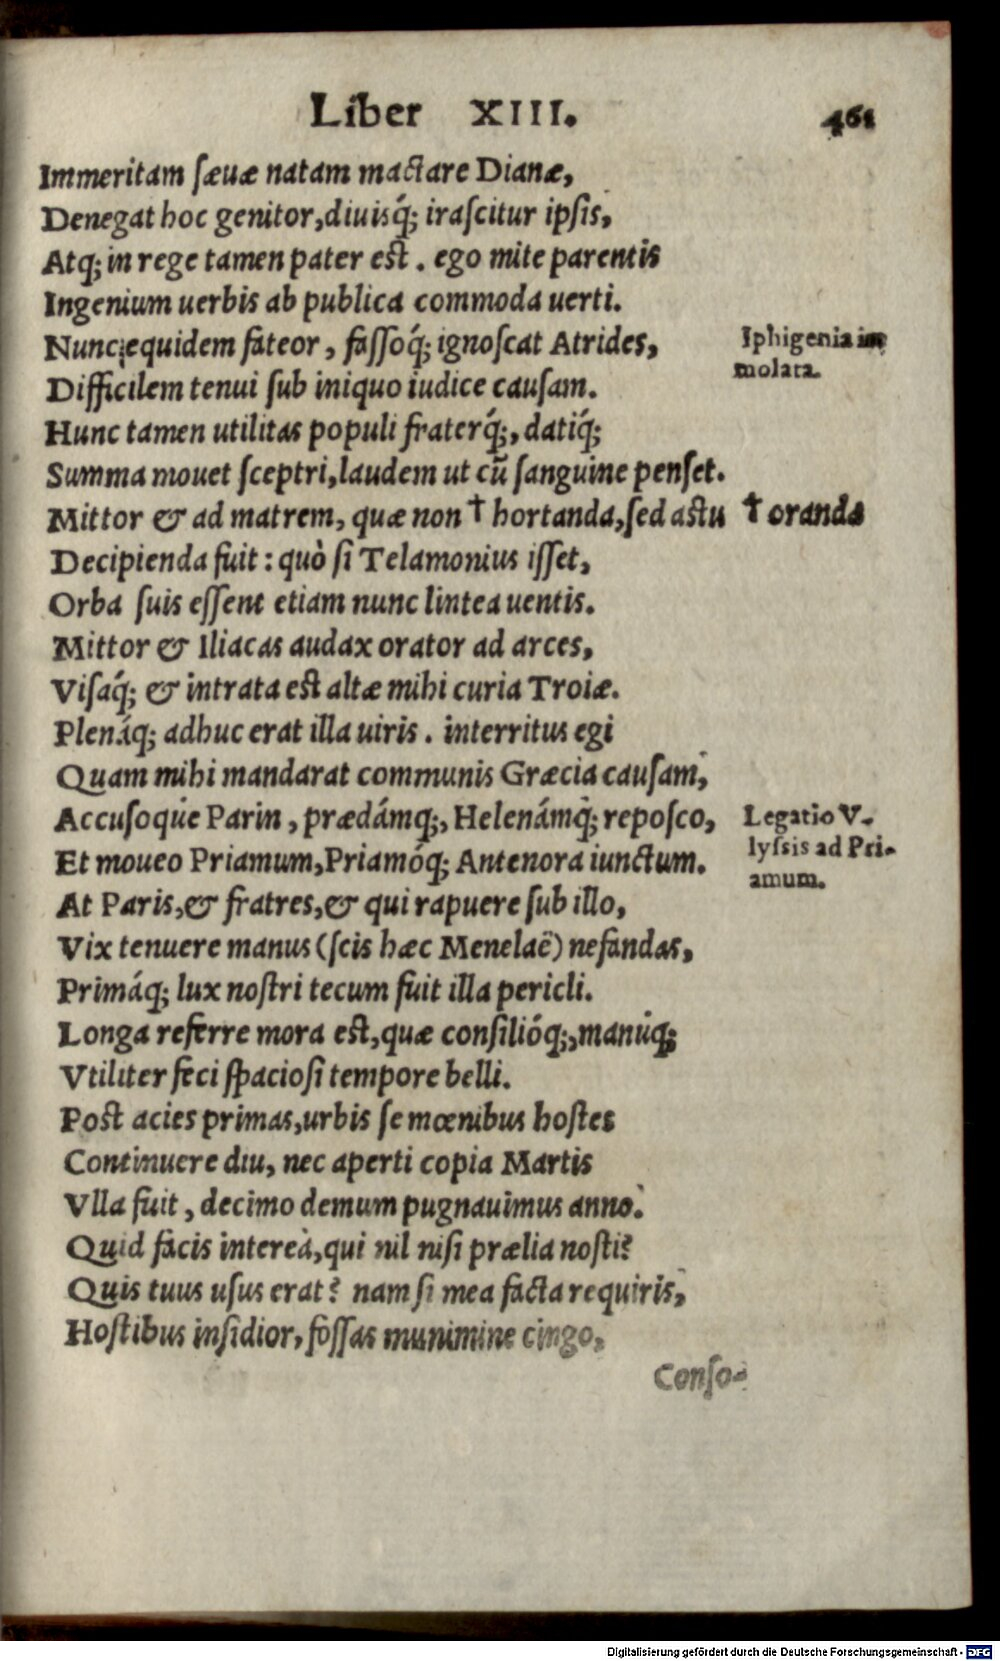 Liber XIII. 461
Immeritam sæuæ natam mactare Dianæ,
Denegat hoc genitor, diuisq́; irascitur ipsis,
Atq; in rege tamen pater est. ego mite parentis
Ingenium uerbis ab publica commoda uerti.
Nunc equidem fateor, fassoq́; ignoscat Atrides,
Iphigenia im
molata.
Difficilem tenui sub iniquo iudice causam.
Hunc tamen utilitas populi fraterq́;, datiq́;
Summa mouet sceptri, laudem ut cũ sanguine penset.
Mittor & ad matrem, quæ non † hortanda, sed astu
† oranda
Decipienda fuit: quò si Telamonius isset,
Orba suis essent etiam nunc lintea uentis.
Mittor & Iliacas audax orator ad arces,
Visaq́; & intrata est altæ mihi curia Troiæ.
Plenáq; adhuc erat illa uiris. interritus egi
Quam mihi mandarat communis Græcia causam,
Accusoqúe Parin, prædámq;, Helenámq; reposco,
Legatio V-
lyssis ad Pri-
amum.
Et moueo Priamum, Priamóq; Antenora iunctum.
At Paris, & fratres, & qui rapuere sub illo,
Vix tenuere manus (scis hæc Menelaë) nefandas,
Primáq; lux nostri tecum fuit illa pericli.
Longa referre mora est, quæ consilióq;, manúq;
Vtiliter feci spaciosi tempore belli.
Post acies primas, urbis se mœnibus hostes
Continuere diu, nec aperti copia Martis
Vlla fuit, decimo demum pugnauimus anno.
Quid facis intereà, qui nil nisi prælia nosti?
Quis tuus usus erat? nam si mea facta requiris,
Hostibus insidior, fossas munimine cingo,
Conso-
Digitalisierung gefördert durch die Deutsche Forschungsgemeinschaft - DFG